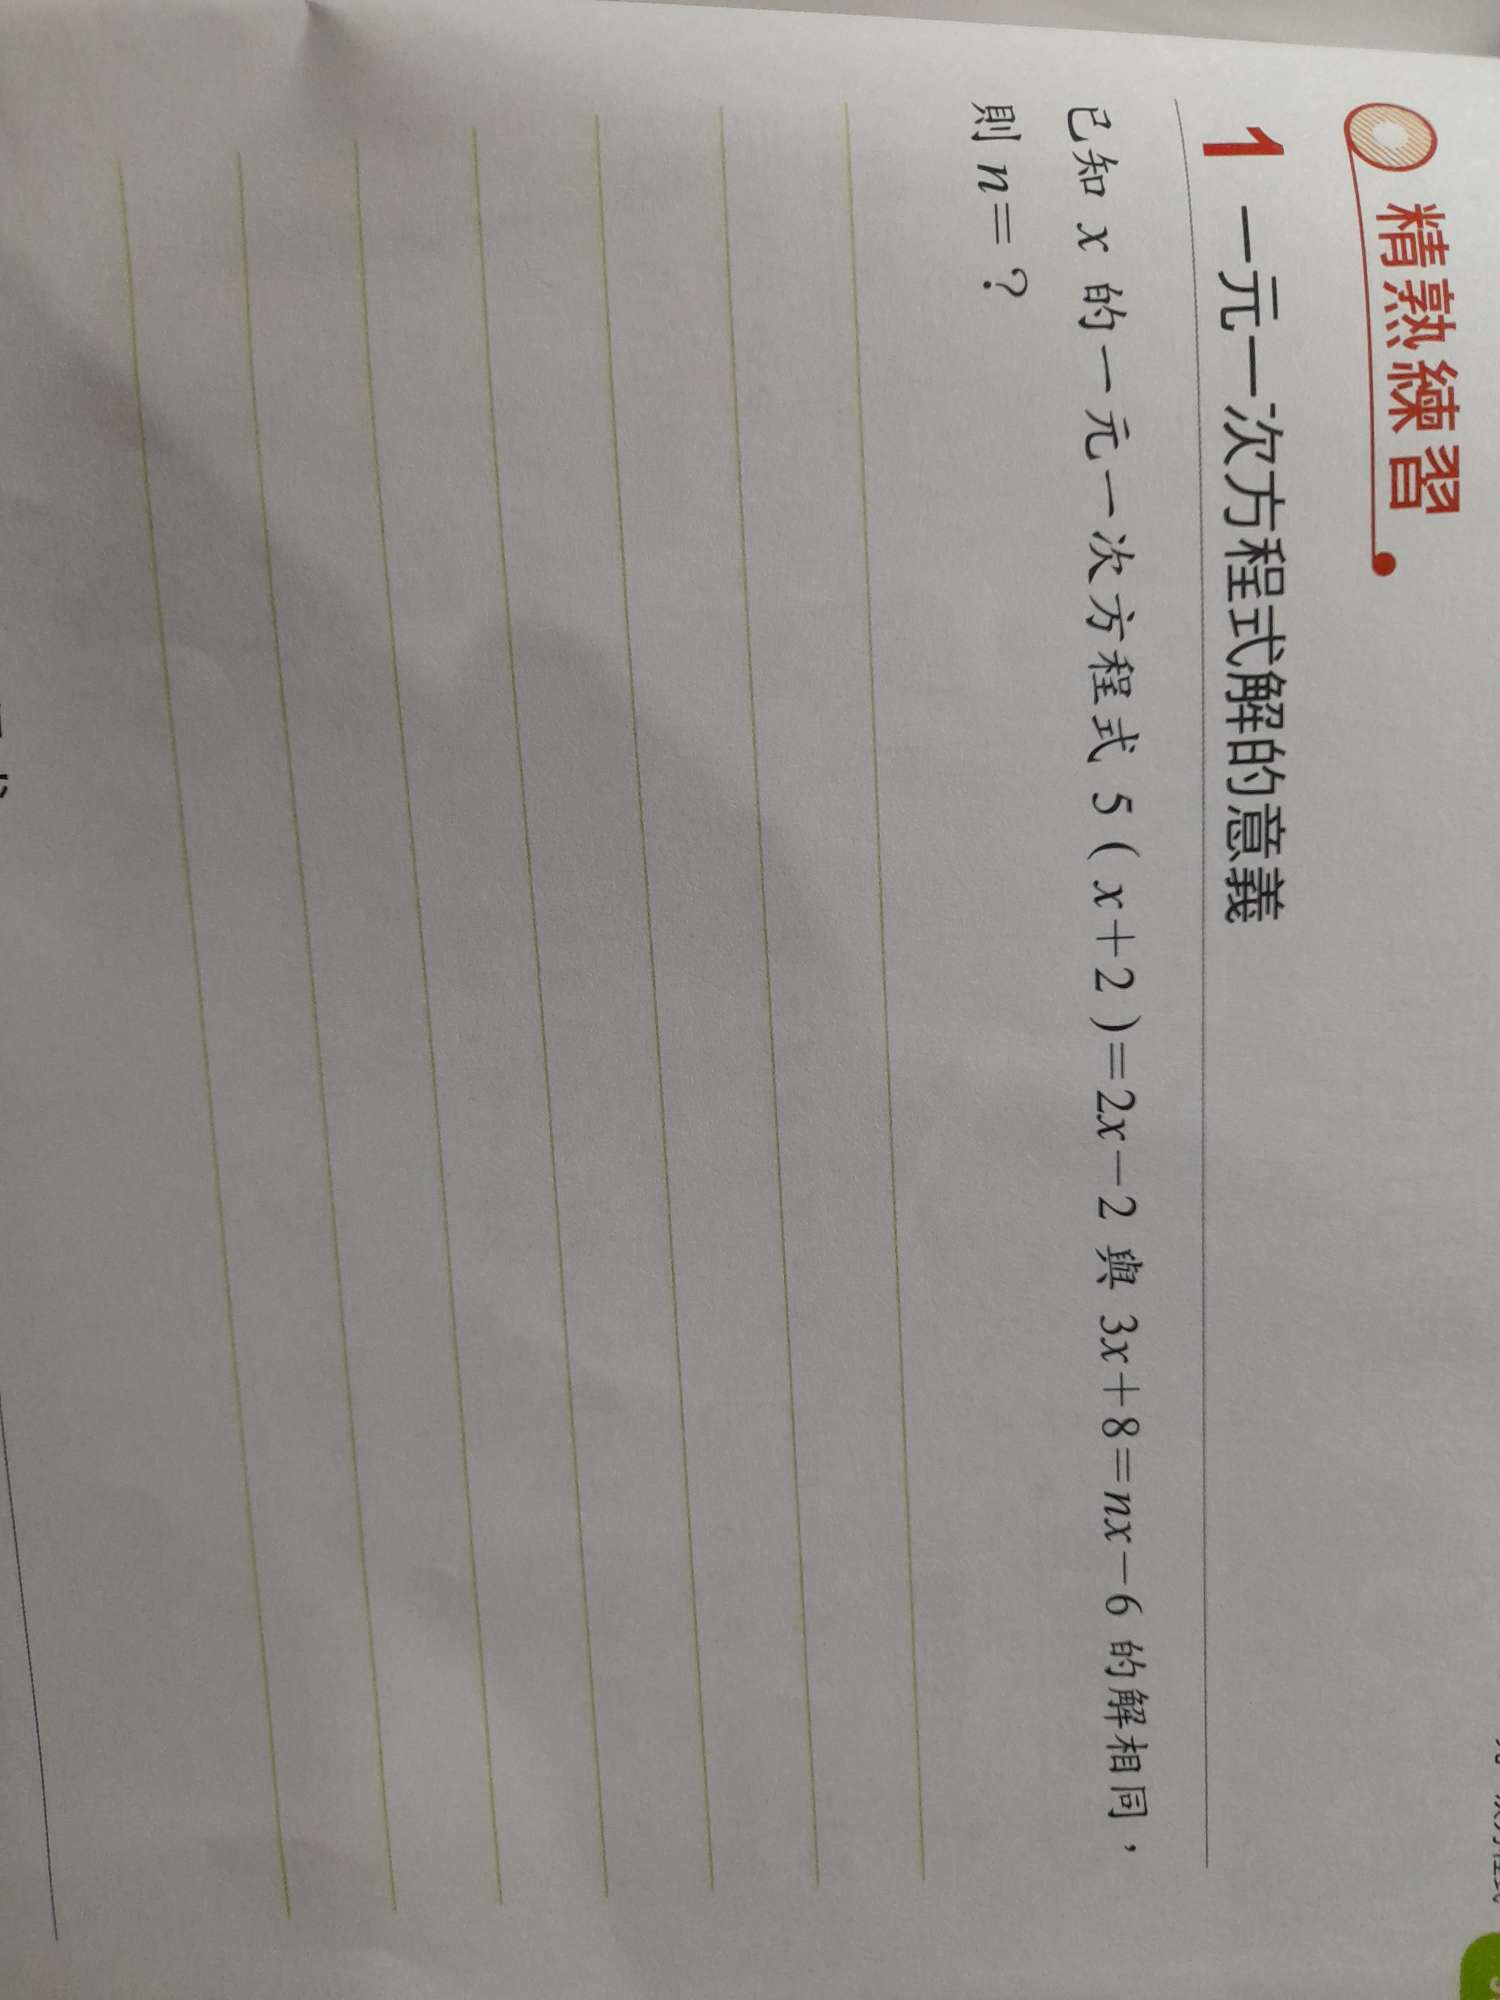 精熟練習
1 一元一次方程式解的意義
已知 x 的一元一次方程式 5(x+2)=2x-2 與 3x+8=nx-6 的解相同，
則 n=？